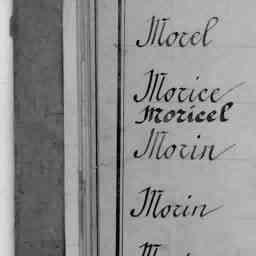 Morel
Morice
Moricel
Morin
Morin